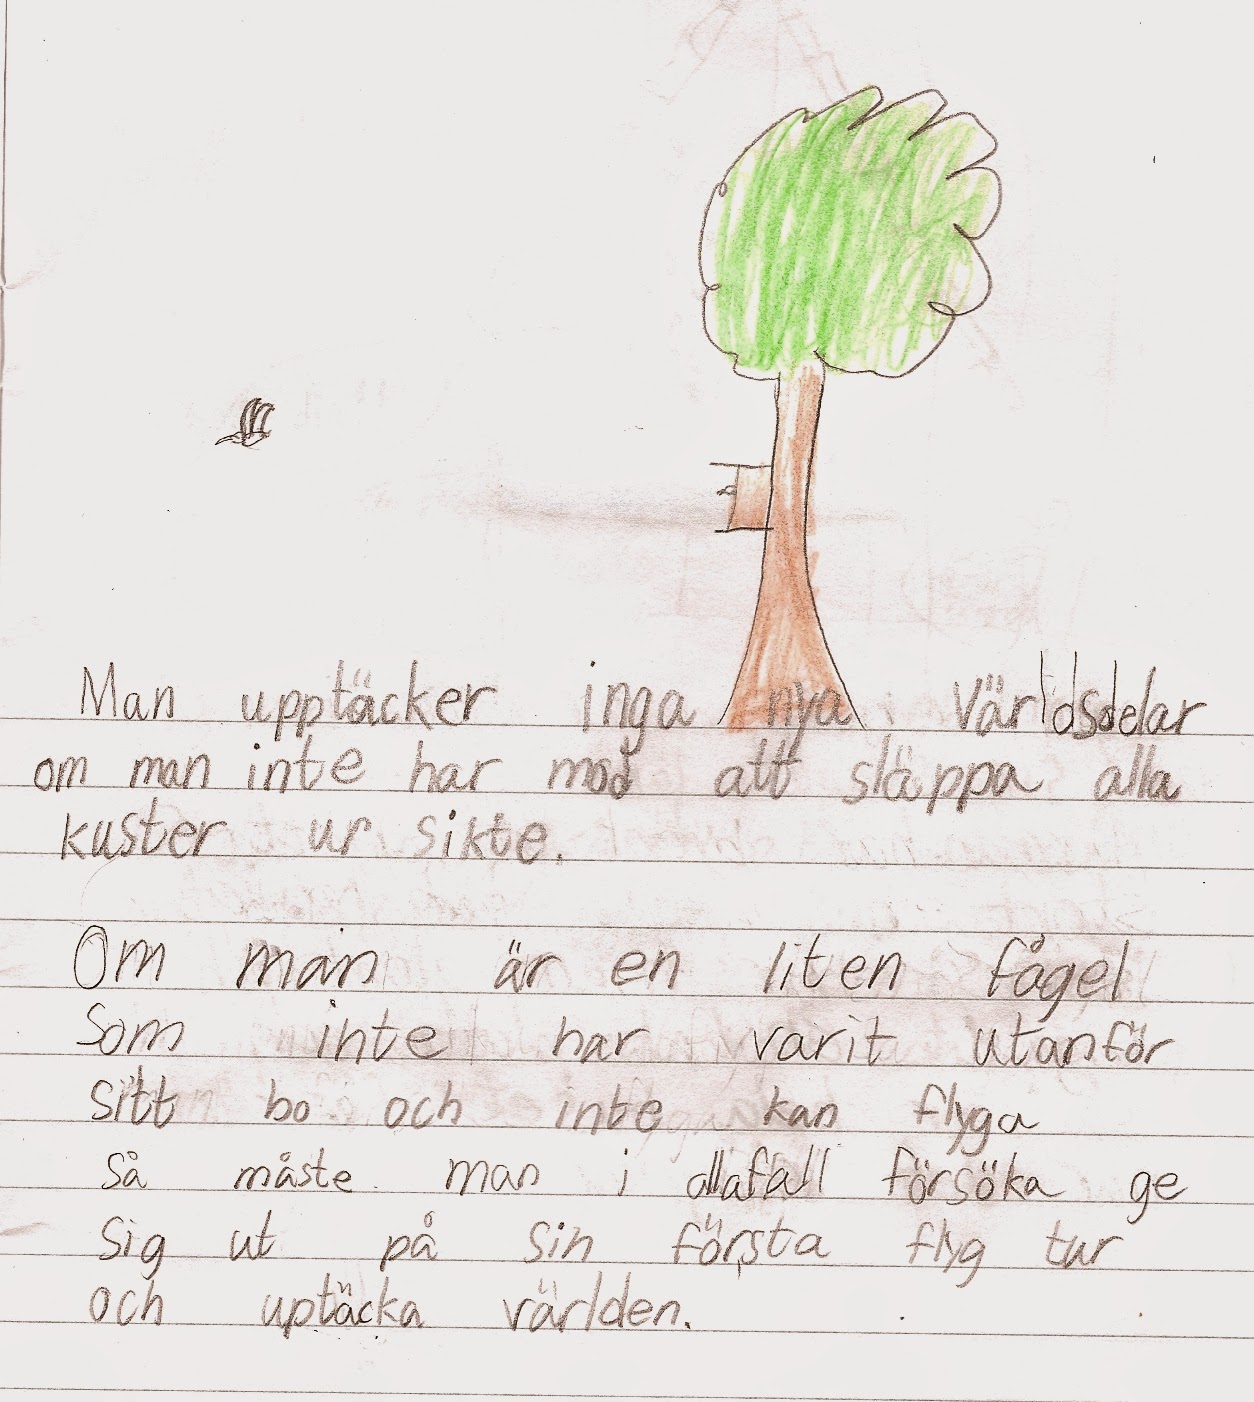 Man upptäcker inga nya världsdelar
om man inte har mod att släppa alla
kuster ur sikte.
Om man är en liten fågel
som inte har varit utanför
sitt bo och inte kan flyga
så måste man i allafall försöka ge
sig ut på sin första flyg tur
och uptäcka världen.